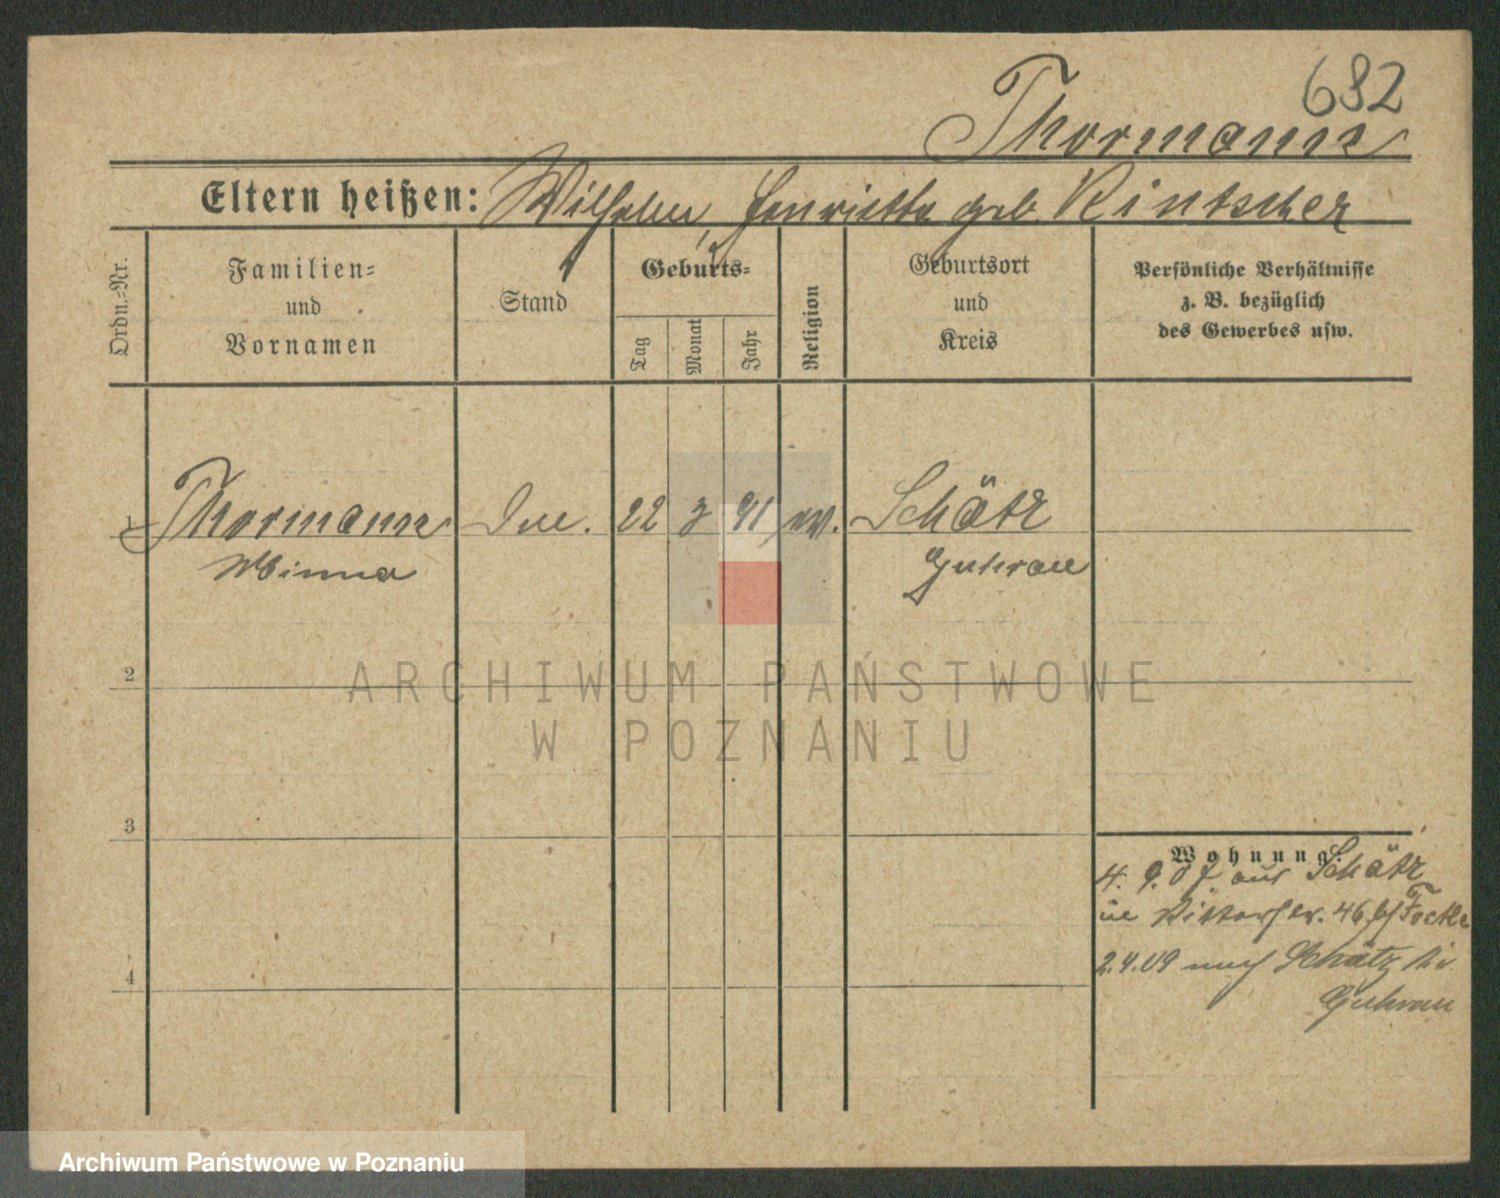 682
Thormann
Eltern heißen: Wilhelm, Henriette geb. Rintscher
Ordn.-Nr.
Familien-
und
Vornamen
Stand
Geburts-
Tag
Monat
Jahr
Religion
Geburtsort
und
Kreis
Persönliche Verhältnisse
z. B. bezüglich
des Gewerbes usw.
1 Thormann 22 3 91 ev. Schätz
Minna Guhrau
2
3
4
Wohnung:
4. 9. 07 aus Schätz
in Ritterstr. 46 b/
2.4.09 nach Schätz Kr.
Guhrau
ARCHIWUM PAŃSTWOWE
W POZNANIU
Archiwum Państwowe w Poznaniu